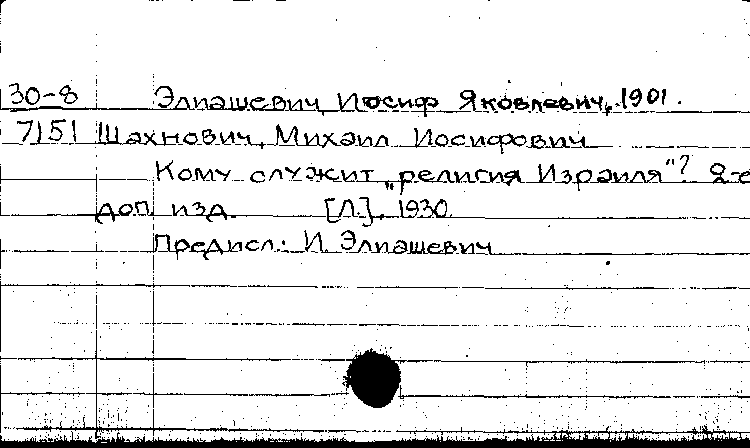 30-8 Элиашевич, Иосиф Яковлевич, 1901.
7151 Шахнович, Михаил Иосифович
Кому служит „религия Израиля"? 2-е
доп. изд. [Л.], 1930.
Предисл.: И. Элиашевич